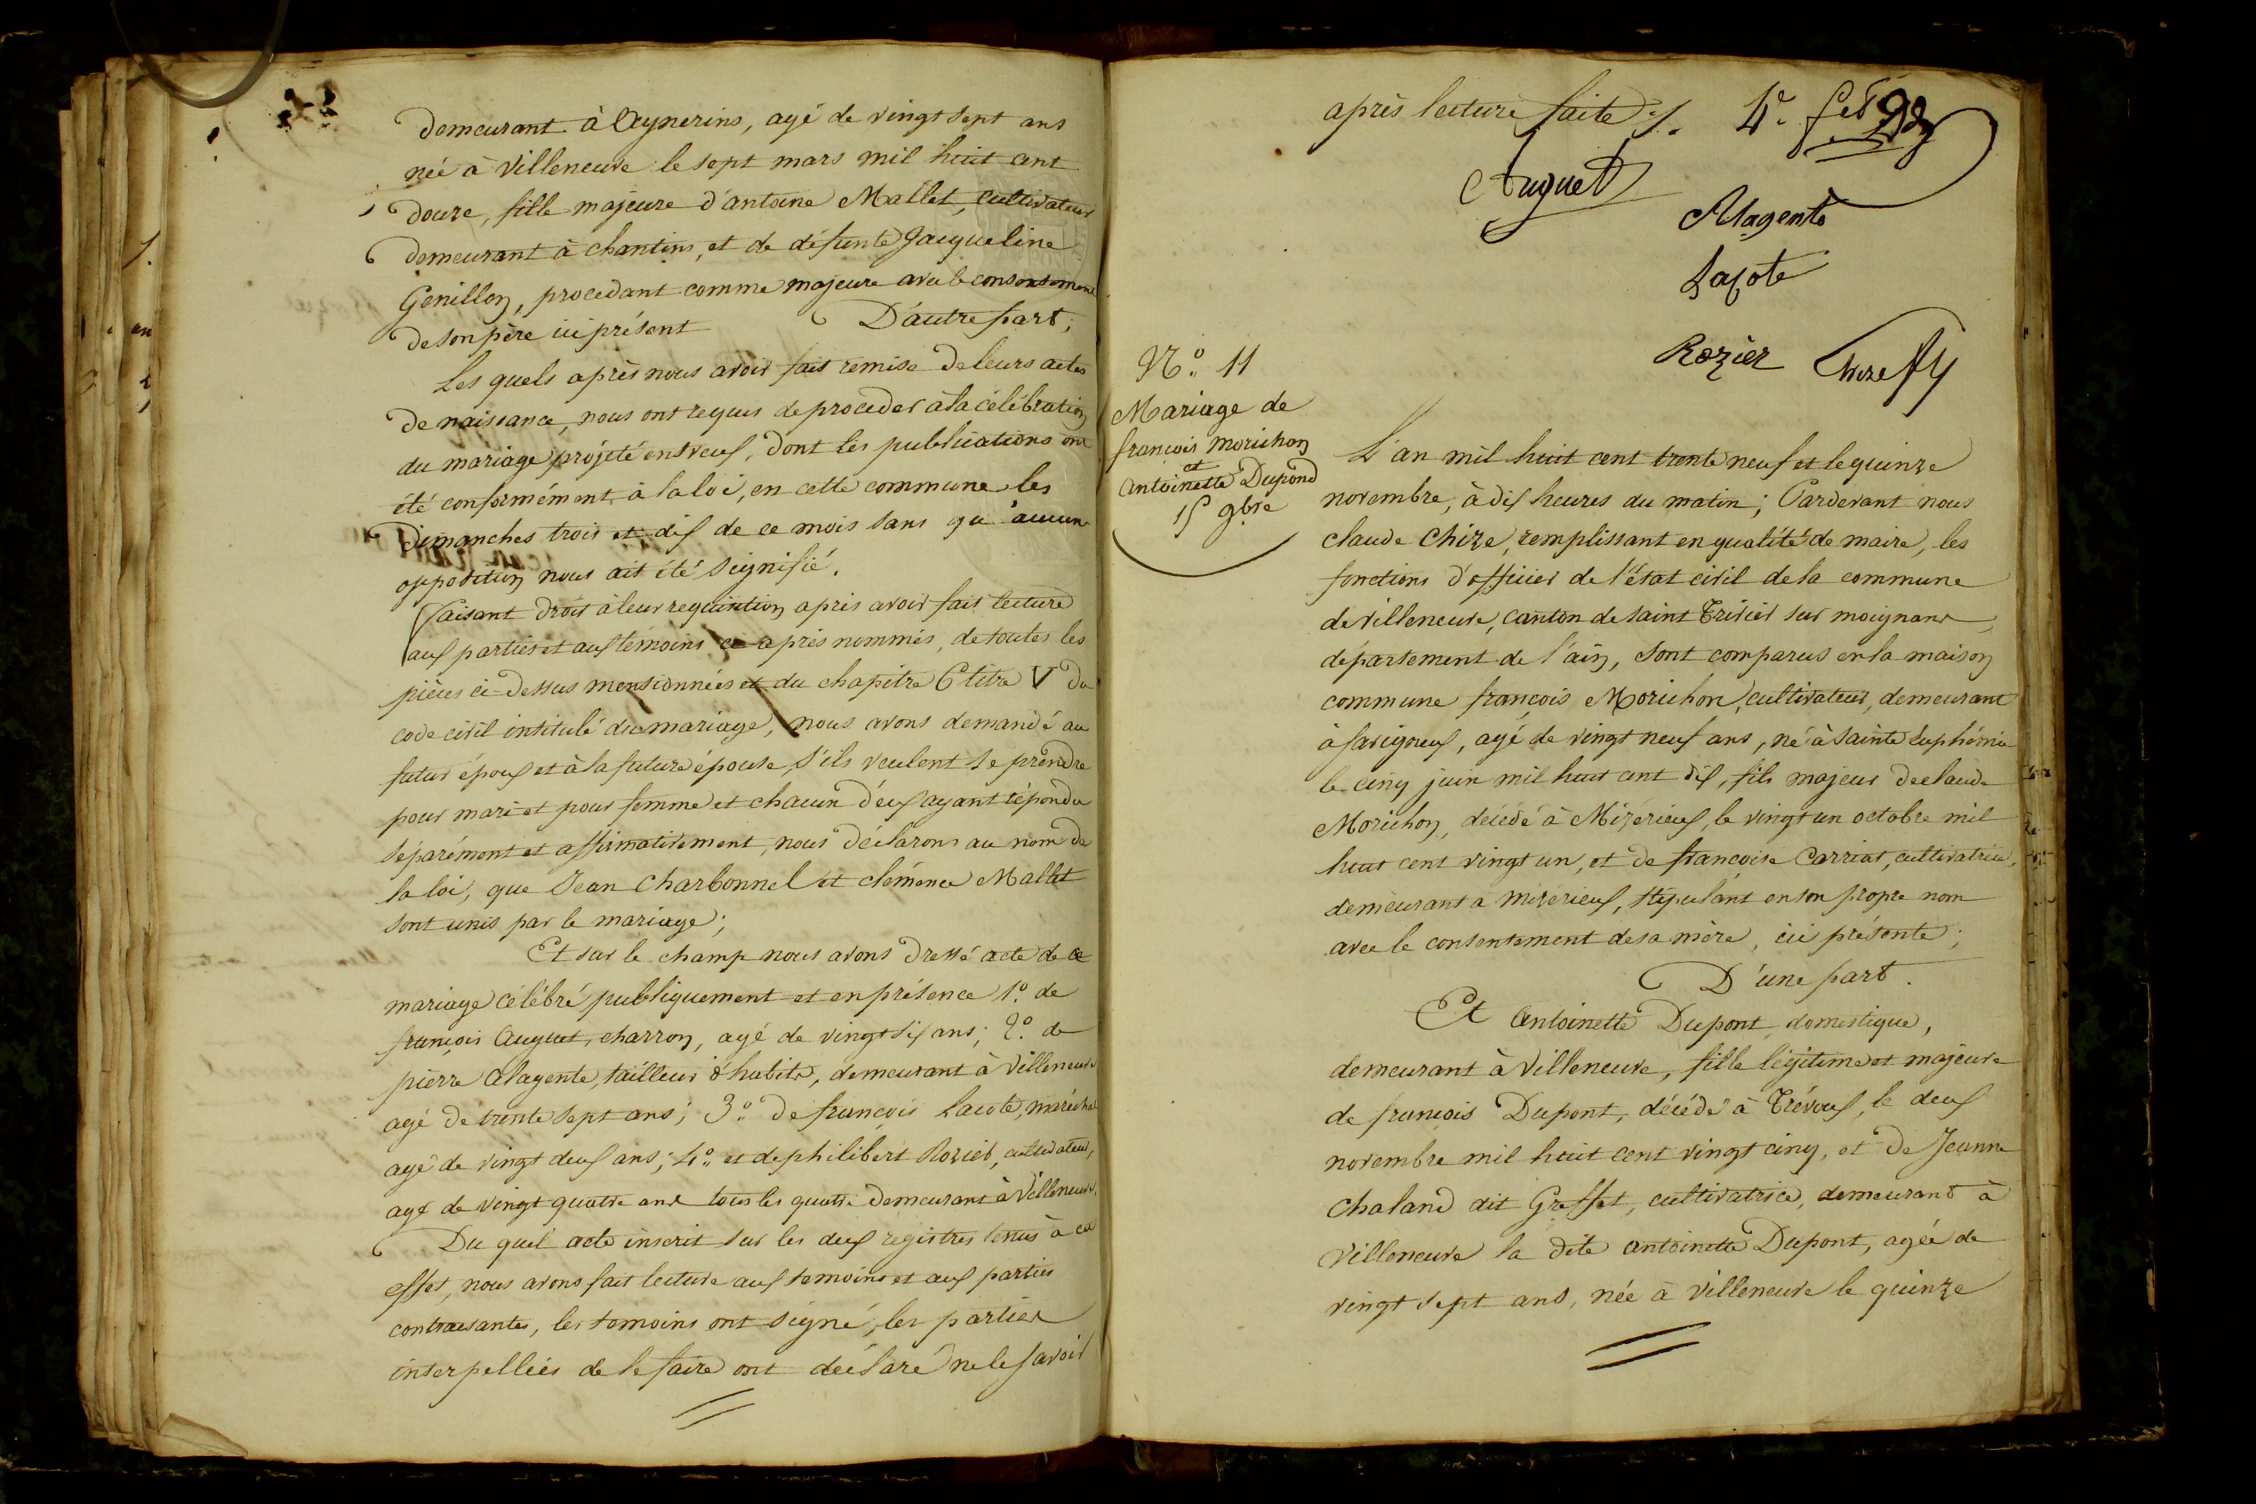 demeurant à Aynerins, agé de vingt sept ans
née à Villeneuve le sept mars mil huit cent
douze, fille majeure d'antoine Mallet, cultivateur
demeurant à chantins, et de défunte Jacqueline
Genillon, procedant comme majeure avec le consentement
de son père ici présent D'autre part;
Les quels après nous avoir fait remise de leurs actes
de naissance, nous ont requis de proceder à la célébration
du mariage projeté entr'eux, dont les publications ont
été conformément à la loi, en cette commune les
Dimanches trois et dix de ce mois sans qu'aucune
opposition nous ait été signifié.
Faisant droit à leur requisition après avoir fait lecture
aux parties et aux témoins ci-après nommés, de toutes les
pièces ci-dessus mensionnées et du chapitre 6 titre V du
code civil intitulé du mariage, nous avons demandé au
futur époux et à la future épouse, s'ils veulent se prendre
pour mari et pour femme et chacun d'eux ayant répondu
séparément et affirmativement, nous déclarons au nom de
la loi, que Jean Charbonnel et clémence Mallet
sont unis par le mariage;
Et sur le champ nous avons dressé acte de ce
mariage célébré publiquement et en présence 1.º de
françois Auguet, charron, agé de vingt six ans; 2.º de
pierre Alagente, tailleur d'habits, demeurant à Villeneuve
agé de trente sept ans; 3.º de françois Lacote, maréchal
agé de vingt deux ans; 4.º et de philibert Rozier, cultivateur,
agé de vingt quatre ans tous les quatre demeurant à Villeneuve.
Du quel acte inscrit sur les deux registres tenus à cet
effet, nous avons fait lecture aux temoins et aux parties
contraesantes, les temoins ont signé, les parties
interpellées de le faire ont déclaré ne le savoir
après lecture faite
Auguet
Alagente
Lacote
Rozier Chize
N.º 11
Mariage de
françois Morichon
et
Antoinette Dupond
15 9bre
L'an mil huit cent trente neuf et le quinze
novembre, à dix heures du matin; Pardevant nous
claude Chize, remplissant en qualité de maire, les
fonctions d'officier de l'état civil de la commune
de villeneuve, canton de saint Trivier sur moignans,
département de l'ain, sont comparus en la maison
commune françois Morichon, cultivateur, demeurant
à savigneux, agé de vingt neuf ans, né à Sainte Euphémie
le cinq juin mil huit cent dix, fils majeur de claude
Morichon, décédé à Mizérieux, le vingt un octobre mil
huit cent vingt un, et de françoise Carriat, cultivatrice,
demeurant à mizerieux, stipulant en son propre nom
avec le consentement de sa mère, ici présente;
D'une part.
Et Antoinette Dupont, domestique,
demeurant à Villeneuve, fille légitime et majeure
de françois Dupont, décédé à Trévoux, le deux
novembre mil huit cent vingt cinq, et de Jeanne
Chaland dit Greffet, cultivatrice, demeurant à
Villeneuve la dite antoinette Dupont, agée de
vingt sept ans, née à Villeneuve le quinze